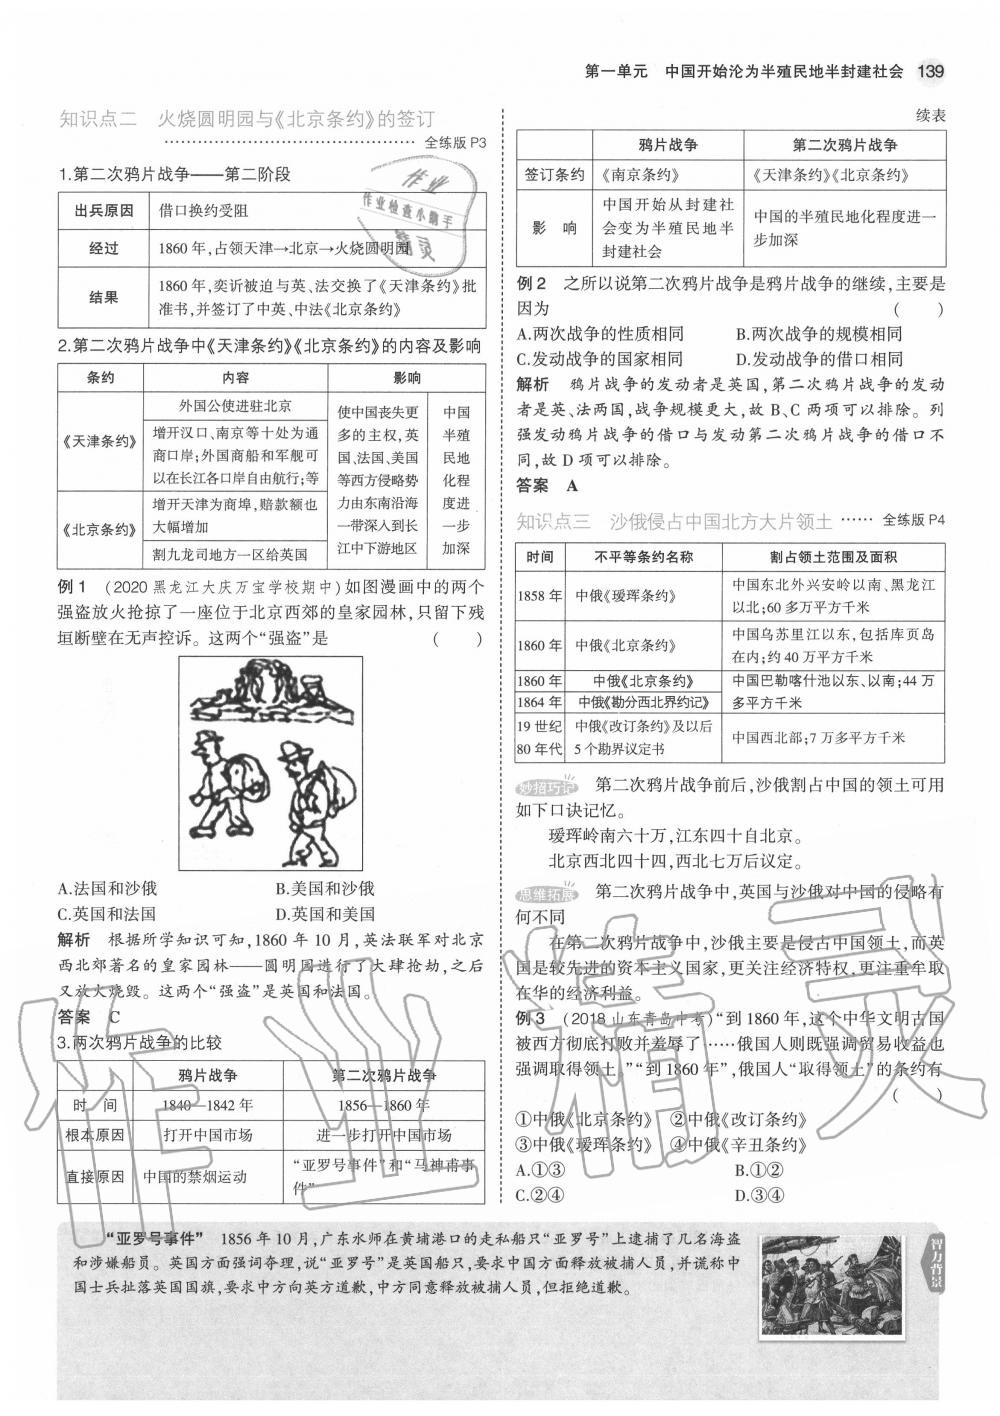 第一单元 中国开始沦为半殖民地半封建社会 139
知识点二 火烧圆明园与《北京条约》的签订
全练版 P3
1.第二次鸦片战争——第二阶段
出兵原因 借口换约受阻
经过 1860 年,占领天津→北京→火烧圆明园
结果 1860 年,奕䜣被迫与英、法交换了《天津条约》批
准书,并签订了中英、中法《北京条约》
作业
作业检查小助手
精灵
2.第二次鸦片战争中《天津条约》《北京条约》的内容及影响
条约 内容 影响
《天津条约》
外国公使进驻北京
增开汉口、南京等十处为通
商口岸;外国商船和军舰可
以在长江各口岸自由航行;等
《北京条约》
增开天津为商埠,赔款额也
大幅增加
割九龙司地方一区给英国
使中国丧失更
多的主权,英
国、法国、美国
等西方侵略势
力由东南沿海
一带深入到长
江中下游地区
中国
半殖
民地
化程
度进
一步
加深
例 1 (2020 黑龙江大庆万宝学校期中)如图漫画中的两个
强盗放火抢掠了一座位于北京西郊的皇家园林,只留下残
垣断壁在无声控诉。这两个“强盗”是 ( )
A.法国和沙俄 B.美国和沙俄
C.英国和法国 D.英国和美国
解析 根据所学知识可知,1860 年 10 月,英法联军对北京
西北郊著名的皇家园林——圆明园进行了大肆抢劫,之后
又放火烧毁。这两个“强盗”是英国和法国。
答案 C
3.两次鸦片战争的比较
鸦片战争 第二次鸦片战争
时 间 1840—1842 年 1856—1860 年
根本原因 打开中国市场 进一步打开中国市场
直接原因 中国的禁烟运动 “亚罗号事件”和“马神甫事
件”
续表
鸦片战争 第二次鸦片战争
签订条约 《南京条约》 《天津条约》《北京条约》
影 响
中国开始从封建社
会变为半殖民地半
封建社会
中国的半殖民地化程度进一
步加深
例 2 之所以说第二次鸦片战争是鸦片战争的继续,主要是
因为 ( )
A.两次战争的性质相同 B.两次战争的规模相同
C.发动战争的国家相同 D.发动战争的借口相同
解析 鸦片战争的发动者是英国,第二次鸦片战争的发动
者是英、法两国,战争规模更大,故 B、C 两项可以排除。列
强发动鸦片战争的借口与发动第二次鸦片战争的借口不
同,故 D 项可以排除。
答案 A
知识点三 沙俄侵占中国北方大片领土 …… 全练版 P4
时间 不平等条约名称 割占领土范围及面积
1858 年 中俄《瑷珲条约》 中国东北外兴安岭以南、黑龙江
以北;60 多万平方千米
1860 年 中俄《北京条约》 中国乌苏里江以东,包括库页岛
在内;约 40 万平方千米
1860 年 中俄《北京条约》 中国巴勒喀什池以东、以南;44 万
1864 年 中俄《勘分西北界约记》 多平方千米
19 世纪 中俄《改订条约》及以后
80 年代 5 个勘界议定书 中国西北部;7 万多平方千米
妙招巧记 第二次鸦片战争前后,沙俄割占中国的领土可用
如下口诀记忆。
瑷珲岭南六十万,江东四十自北京。
北京西北四十四,西北七万后议定。
思维拓展 第二次鸦片战争中,英国与沙俄对中国的侵略有
何不同
在第二次鸦片战争中,沙俄主要是侵占中国领土,而英
国是较先进的资本主义国家,更关注经济特权,更注重牟取
在华的经济利益。
例 3 (2018 山东青岛中考)“到 1860 年,这个中华文明古国
被西方彻底打败并羞辱了……俄国人则既强调贸易收益也
强调取得领土。”“到 1860 年”,俄国人“取得领土”的条约有
( )
①中俄《北京条约》 ②中俄《改订条约》
③中俄《瑷珲条约》 ④中俄《辛丑条约》
A.①③ B.①②
C.②④ D.③④
“亚罗号事件” 1856 年 10 月,广东水师在黄埔港口的走私船只“亚罗号”上逮捕了几名海盗
和涉嫌船员。英国方面强词夺理,说“亚罗号”是英国船只,要求中国方面释放被捕人员,并谎称中
国士兵扯落英国国旗,要求中方向英方道歉,中方同意释放被捕人员,但拒绝道歉。
智力背景
作业精灵